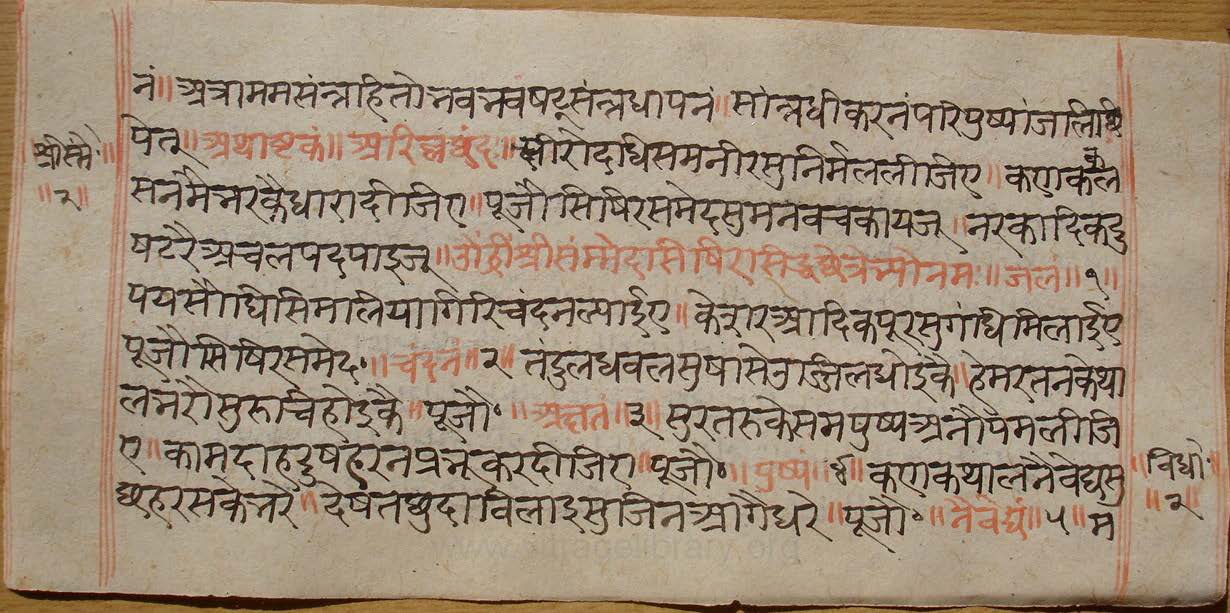 नं॥ अत्राममसंन्नाहितोनवनवषट्संन्नधापनं॥ सांन्नधीकरनंपरिपुष्पांजालिषि
श्रीस्मै॥
पेत्॥ अथाष्टकं॥ अरिल्लछंद॥ क्षीरोदधिसमनीरसुनिर्मललीजिए॥ कणकल
॥२॥
सनमैनरकैधारादीजिए॥ पूजौसिषिरसमेदसुमनवचकायजू॥ नरकादिकदु
षटरैअचलपदपाइजू॥ ॐह्रीश्रीसंमेदासिषिरासिद्धक्षेत्रेभ्योनमः॥ जलं॥१॥
पयसौघसिमालियागिरिचंदनल्पाईए॥ केशरआदिकपूरसुगंधिमिलाईए
पूजौसिषिरसमेद॰॥ चंदनं॥२॥ तंदुलधवलसुषासेउज्जिलधोइकै॥ हेमरतनकेथा
लनरौसुरुचिहोइकै॥ पूजौ॰॥ अक्षतं॥३॥ सुरतरुकेसमपुष्पअनौपमलीजि
ए॥ कामदाहदुषहरनप्रनूकरदीजिए॥ पूजौ॰॥ पुष्पं॥४॥ कणकथालनैवेद्यसु
॥विधौ॥
षटरसकेनरे॥ देषतक्षुदाविलाइसुजिनआगैधरे॥ पूजौ॰॥ नैवेद्यं॥५॥ म
॥२॥